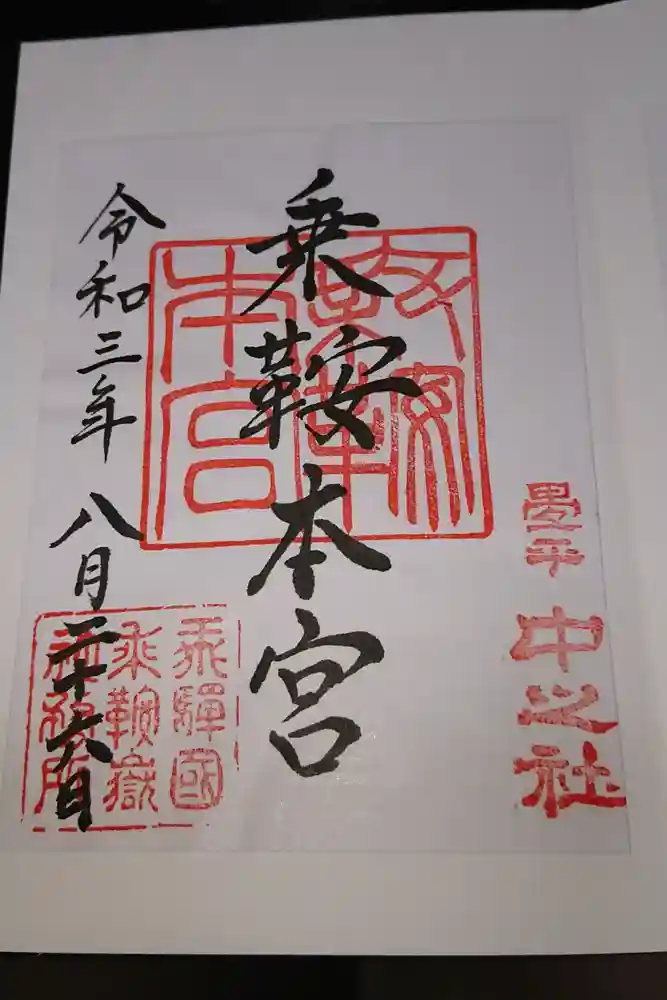 畳平
中之社
乗鞍本宮
本宮
令和三年 八月二十六日
飛驒國
乗鞍嶽